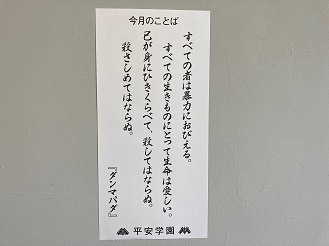 今月のことば
すべての者は暴力におびえる。
すべての生きものにとって生命は愛しい。
己が身にひきくらべて、殺してはならぬ。
殺さしめてはならぬ。
『ダンマパダ』
平安学園